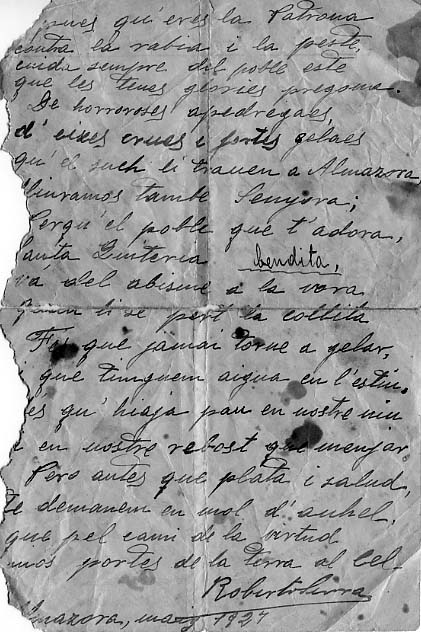 pues qu'eres la Patrona
contra la rabia i la peste,
cuida sempre del poble este
que les teues glories pregona.
De horroroses apedregaes,
d'eixes crues i fortes gelaes
qu'el such li trauen a Almazora,
lliuramos també Senyora;
Perqu'el poble que t'adora,
Santa Quiteria bendita,
va del abisme a la vora
quan li se pert la collita
Fes que jamai torne a gelar,
que tinguem aigua en l'estiu,
es qu'hiaja pau en nostre niu
i en nostre rebost que menjar
Pero antes que plata i salud,
te demanem en mol d'anhel,
que pel cami de la virtud
mos portes de la terra al cel-
Roberto Serra
Almazora, maig 1927